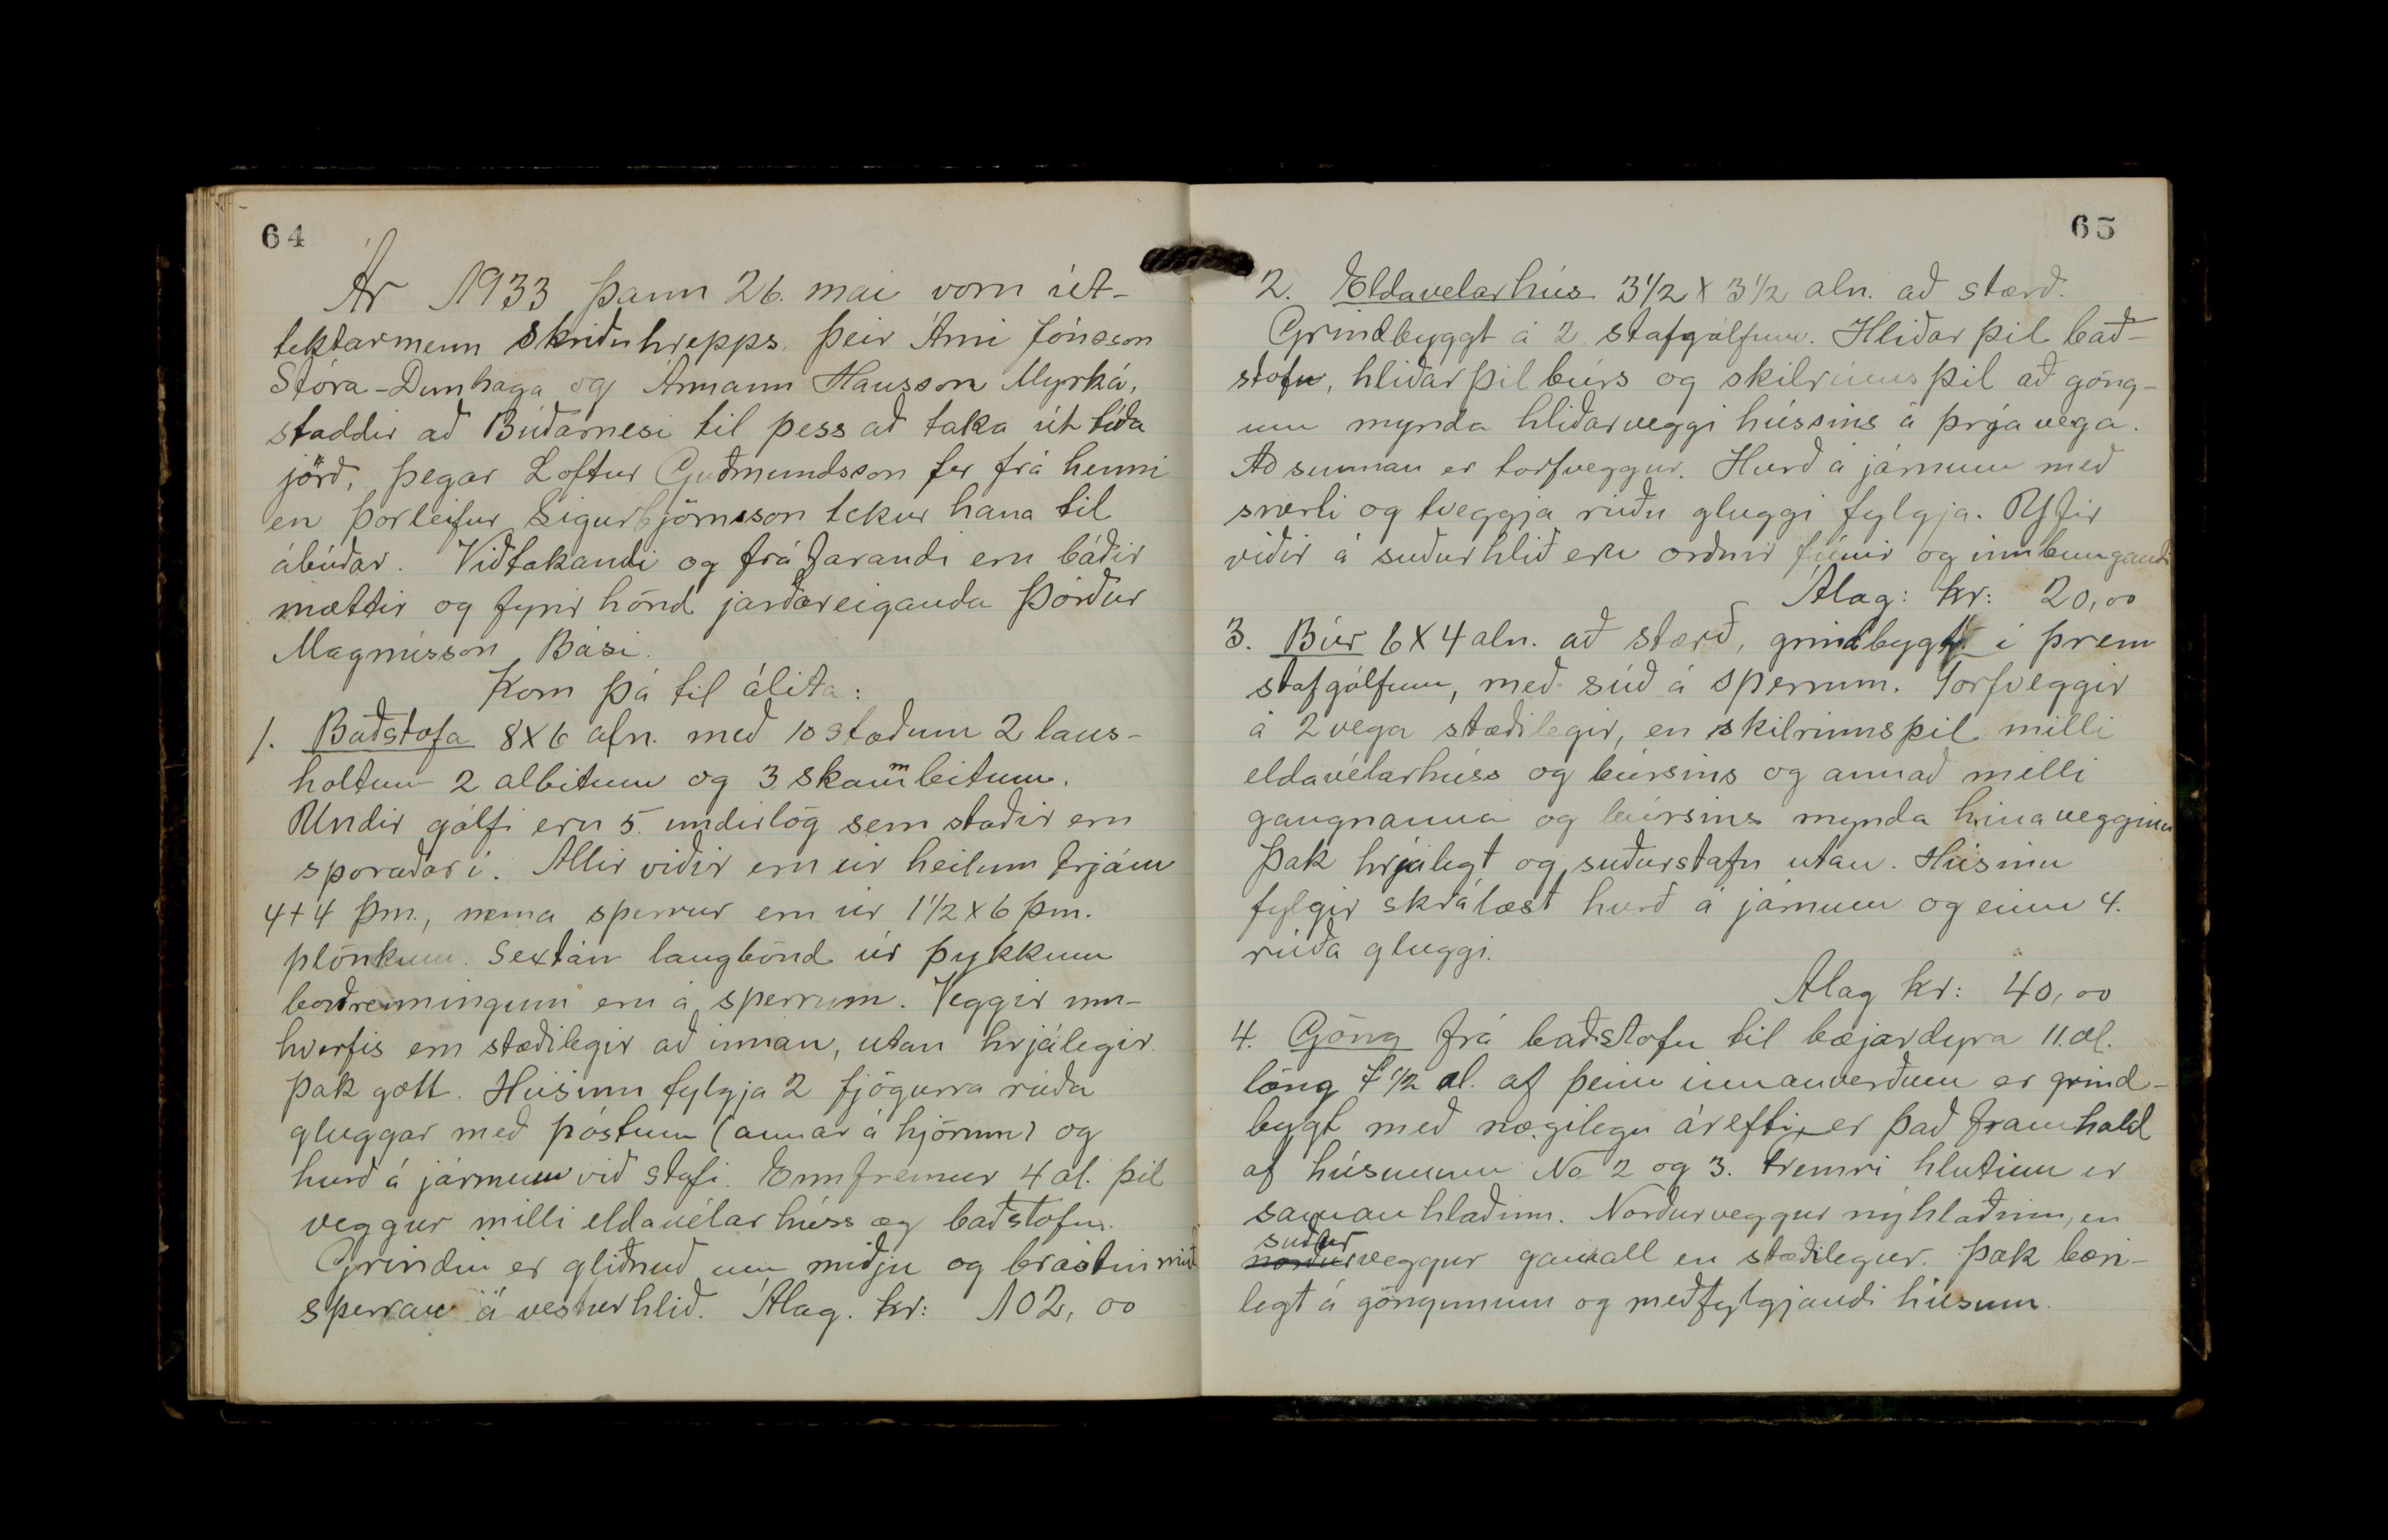 64
Ár 1933 þann 26. mai voru út-
tektarmenn Skriðuhrepps. þeir Árni Jónsson
Stóra-Dunhaga og Ármann Hansson Myrká,
staddir að Búðarnesi til þess að taka út tíða
jörð, þegar Loftur Guðmundsson fer frá henni
en Þorleifur Sigurbjörnsson tekur hana til
ábúðar. Viðtakandi og fráfarandi eru báðir
mættir og fyrir hönd jarðareiganda Þórður
Magnússon Bási.
Kom þá til álita:
1. Baðstofa 8x6 aln. með 10 stoðum 2 laus-
holtum 2 albitum og 3 skammbitum.
Undir gólfi eru 5. undirlög sem stoðir eru
sporaðar í. Allir viðir eru úr heilum trjám
4+4 þm., nema sperrur eru úr 1 1/2 x 6 þm.
plönkum. Sextán langbönd úr þykkum
borðrenningum eru á sperrum. Veggir um-
hverfis eru stæðilegir að innan, utan hrjálegir.
Þak gott. Húsinu fylgja 2 fjögurra rúða
gluggar með póstum (annar á hjörum) og
hurð á járnum við stafi. Ennfremur 4 al. þil
veggur milli eldavélarhúss og baðstofu.
Grindin er gliðnuð um miðju og brostin mið
sperran á vesturhlið. Álag. kr: 102,00
65
2. Eldavelarhús 3 1/2 x 3 1/2 aln. að stærð.
Grindbyggt á 2 stafgólfum. Hliðar þil bað-
stofu, hliðarþil búrs og skilrúms þil að göng-
um mynda hliðarveggi hússins á þrjá vega.
Að sunnan er torfveggur. Hurð á járnum með
snerli og tveggja rúðu gluggi fylgja. Yfir
viðir á suðurhlið eru orðnir fúnir og innbungandi
Álag: kr: 20,00
3. Búr 6x4 aln. að stærð, grindbygt í þrem
stafgólfum, með súð á sperrum. Torfveggir
á 2 vega stæðilegir, en skilrúmsþil milli
eldavélarhúss og búrsins og annað milli
gangnanna og búrsins mynda hina veggina
Þak hrjálegt og suðurstafn utan. Húsinu
fylgir skrálæst hurð á járnum og einn 4.
rúða gluggi.
Alag kr: 40,00
4. Göng frá baðstofu til bæjardyra 11. al.
löng 7 1/2 al. af þeim innanverðum er grind-
bygt með nægilegu árefti, er það framhald
af húsunum No 2 og 3. Fremri hlutinn er
samanhlaðinn. Norðurveggur nýhlaðinn, en
suður
norðurveggur gamall en stæðilegur. Þak bæri-
legt á göngunum og meðfylgjandi húsum.